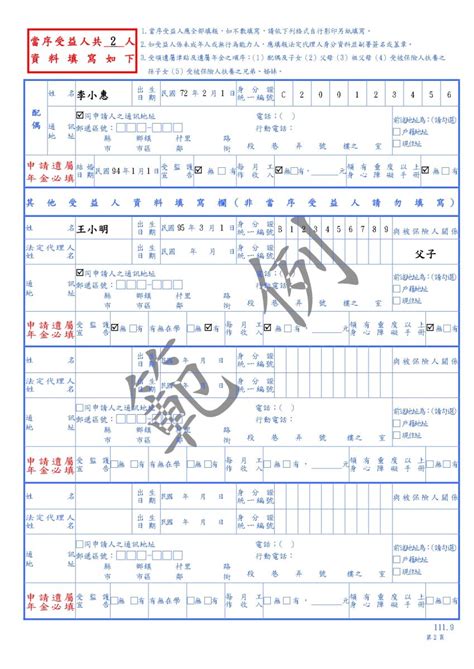 當序受益人共 2 人
資料填寫如下
1.當序受益人應全部填報，如不敷填寫，請依下列格式自行影印另紙填寫。
2.如受益人係未成年人或無行為能力人，應填報法定代理人身分資料並副署簽名或蓋章。
3.受領遺屬津貼及遺屬年金之順序：(1) 配偶及子女 (2) 父母 (3) 祖父母 (4) 受被保險人扶養之
孫子女 (5) 受被保險人扶養之兄弟、姊妹。
配偶 姓名 李小惠 出生日期 民國 72 年 2 月 1 日 身分證統一編號 C 2 0 0 1 2 3 4 5 6
通訊地址 ☑同申請人之通訊地址 電話：( )
郵遞區號：□□□-□□ 行動電話：
縣市 鄉鎮市區 村里鄰 路街 段 巷 弄 號 樓之 室
前項地址為：(請勾選)
□戶籍地址
□現住址
申請遺屬年金必填 結婚日期 民國 94 年 1 月 1 日 受監護宣告 ☑無□有 每月工作收入 ☑無□有 領有重度以上身心障礙手冊 ☑無□有
其他受益人資料填寫欄(非當序受益人請勿填寫)
姓名 王小明 出生日期 民國 95 年 3 月 1 日 身分證統一編號 0 1 2 3 4 5 6 7 8 9 與被保險人關係
法定代理人姓名 父子
通訊地址 ☑同申請人之通訊地址 電話：( )
郵遞區號：□□□-□□ 行動電話：
縣市 鄉鎮市區 村里鄰 路街 段 巷 弄 號 樓之 室
前項地址為：(請勾選)
□戶籍地址
□現住址
申請遺屬年金必填 受監護宣告 ☑無□有 ☑無□有在學 ☑無□有 每月工作收入 ☑無□有 領有重度以上身心障礙手冊 ☑無□有
姓名 出生日期 民國 年 月 日 身分證統一編號 與被保險人關係
法定代理人姓名
通訊地址 □同申請人之通訊地址 電話：( )
郵遞區號：□□□-□□ 行動電話：
縣市 鄉鎮市區 村里鄰 路街 段 巷 弄 號 樓之 室
前項地址為：(請勾選)
□戶籍地址
□現住址
申請遺屬年金必填 受監護宣告 □無□有 □無□有在學 □無□有 每月工作收入 □無□有 領有重度以上身心障礙手冊 □無□有
姓名 出生日期 民國 年 月 日 身分證統一編號 與被保險人關係
法定代理人姓名
通訊地址 □同申請人之通訊地址 電話：( )
郵遞區號：□□□-□□ 行動電話：
縣市 鄉鎮市區 村里鄰 路街 段 巷 弄 號 樓之 室
前項地址為：(請勾選)
□戶籍地址
□現住址
申請遺屬年金必填 受監護宣告 □無□有 □無□有在學 □無□有 每月工作收入 □無□有 領有重度以上身心障礙手冊 □無□有
範例
111.9
第 2 頁